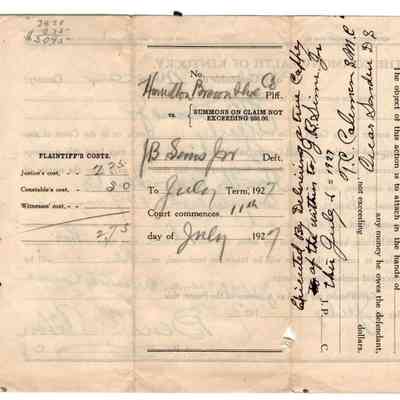 No.
Hamilton Brown Shoe Co
Plff.
vs.
SUMMONS ON CLAIM NOT
EXCEEDING $50.00.
JB Sims Jr
Deft.
To July Term, 1927
Court commences 11th
day of July 1927
PLAINTIFF'S COSTS.
Justice's cost, - 2 25
Constable's cost, - 50
Witnesses' cost, -
2.75
Executed By Delivering a true Coppy
of the within to J B Sims Jr
this July 1 = 1927
T.C. Coleman S.M.C
By Oscar Sanders D.S
J. P. C.
of this action is to attach in the hands of
any money he owes the defendant,
not exceeding dollars.
OF KENTUCKY